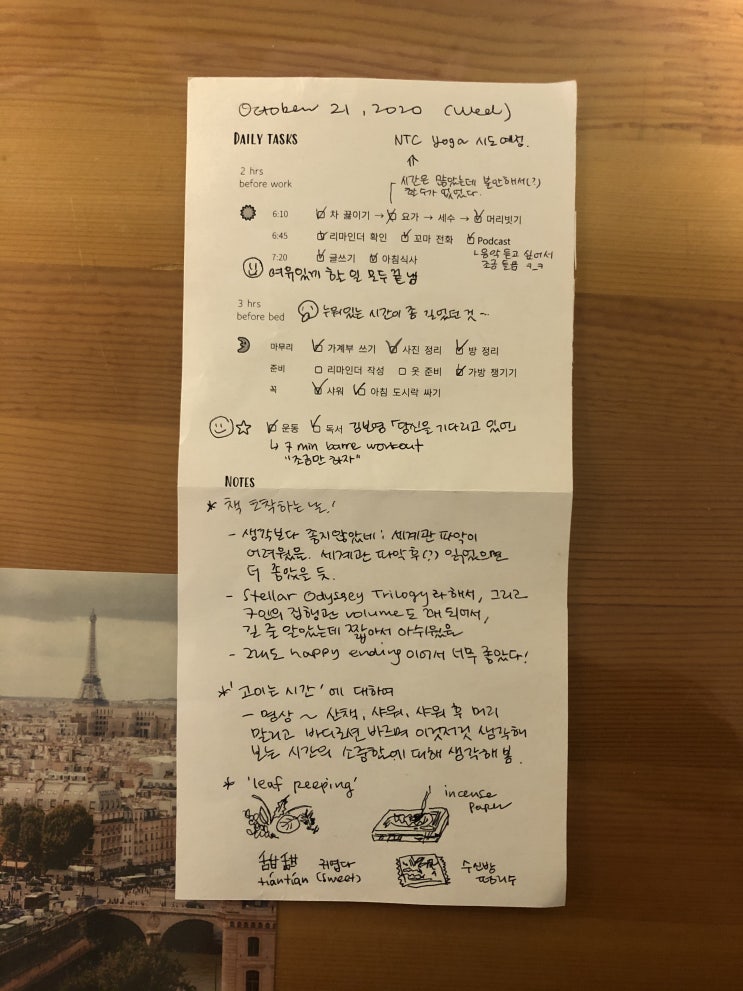 October 21, 2020 (Wed)
DAILY TASKS
NTC yoga 시도예정.
2 hrs
before work
시간은 많았는데 불안해서(?)
할 수가 없었다.
6:10 차 끓이기 → 요가 → 세수 → 머리빗기
6:45 리마인더 확인 꼬마 전화 Podcast
7:20 글쓰기 아침식사
음악 듣고 싶어서
조금 들음
여유있게 할 일 모두 끝냄
3 hrs
before bed
누워있는 시간이 좀 길었던 것~
마무리 가계부 쓰기 사진 정리 방 정리
준비 리마인더 작성 옷 준비 가방 챙기기
꼭 샤워 아침 도시락 싸기
운동 독서 김보영 「당신을 기다리고 있어」
↳ 7 min barre workout
"조금만 하자"
NOTES
* 책 도착하는 날!
- 생각보다 좋지않았네; 세계관 파악이
어려웠음. 세계관 파악 후(?) 읽었으면
더 좋았을 듯.
- Stellar Odyssey Trilogy라 해서, 그리고
volume도 꽤 되어서,
길 줄 알았는데 짧아서 아쉬웠음
- 그래도 happy ending 이어서 너무 좋았다!
* '고이는 시간'에 대하여
- 명상 ~ 산책, 샤워, 샤워 후 머리
말리고 바디로션 바르며 이것저것 생각해
보는 시간의 소중함에 대해 생각해 봄.
* 'leaf peeping'
incense
paper
甜甜 귀엽다
tiántián (sweet)